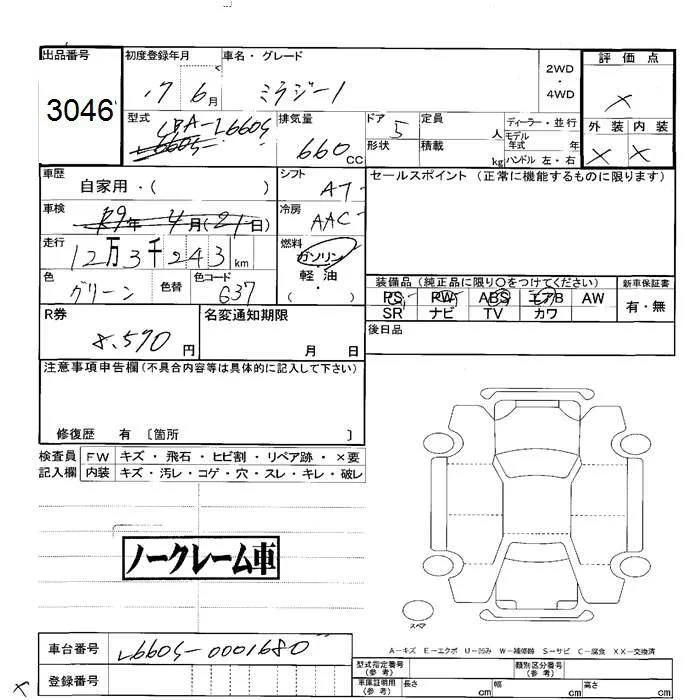 出品番号
3046
初度登録年月
17 6月
車名・グレード
ミラジーノ
2WD
・
4WD
評価点
×
外装 内装
× ×
型式
CBA-L660S
L660S
排気量
660CC
ドア 5
形状
定員 人
積載 kg
ディーラー・並行
モデル年式 年
ハンドル 左・右
車歴
自家用・( )
シフト
AT
車検
R9年 4月(21日)
冷房
AAC
走行
12万3千243km
燃料
ガソリン
軽・油
( ・ )
色
グリーン
色替
色コード
G37
セールスポイント (正常に機能するものに限ります)
装備品 (純正品に限り○をつけてください)
PS PW ABS エアB AW
SR ナビ TV カワ
新車保証書
有・無
後日品
R券
8,570円
名変通知期限
月 日
注意事項申告欄(不具合内容等は具体的に記入して下さい)
修復歴 有 〔箇所 〕
検査員 FW キズ・飛石・ヒビ割・リペア跡・×要
記入欄 内装 キズ・汚レ・コゲ・穴・スレ・キレ・破レ
ノークレーム車
スペア
A-キズ E-エクボ U-凹み W-補修跡 S-サビ C-腐食 XX-交換済
車台番号
L660S-0001680
登録番号
×
型式指定番号
(参考)
類別区分番号
(参考)
車庫証明用
(参考)
長さ cm 幅 cm 高さ cm